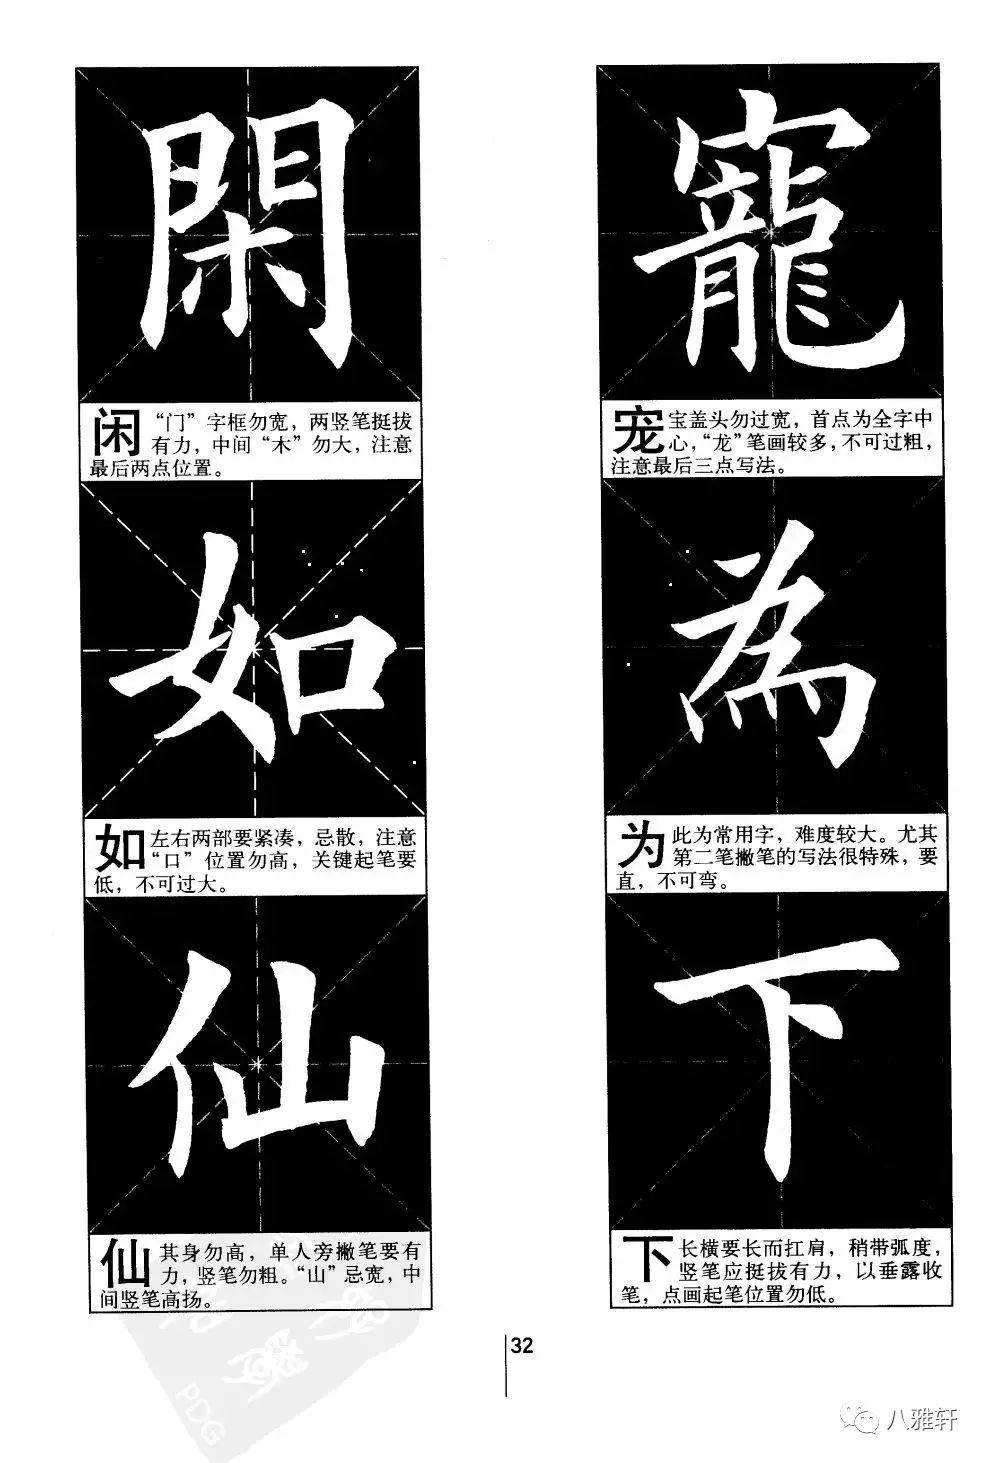 寵
宠 宝盖头勿过宽，首点为全字中
心，“龙”笔画较多，不可过粗，
注意最后三点写法。
為
为 此为常用字，难度较大。尤其
第二笔撇笔的写法很特殊，要
直，不可弯。
下
下 长横要长而扛肩，稍带弧度，
竖笔应挺拔有力，以垂露收
笔，点画起笔位置勿低。
閑
闲 “门”字框勿宽，两竖笔挺拔
有力，中间“木”勿大，注意
最后两点位置。
如
如 左右两部要紧凑，忌散，注意
“口”位置勿高，关键起笔要
低，不可过大。
仙
仙 其身勿高，单人旁撇笔要有
力，竖笔勿粗。“山”忌宽，中
间竖笔高扬。
32
PDG
八雅轩